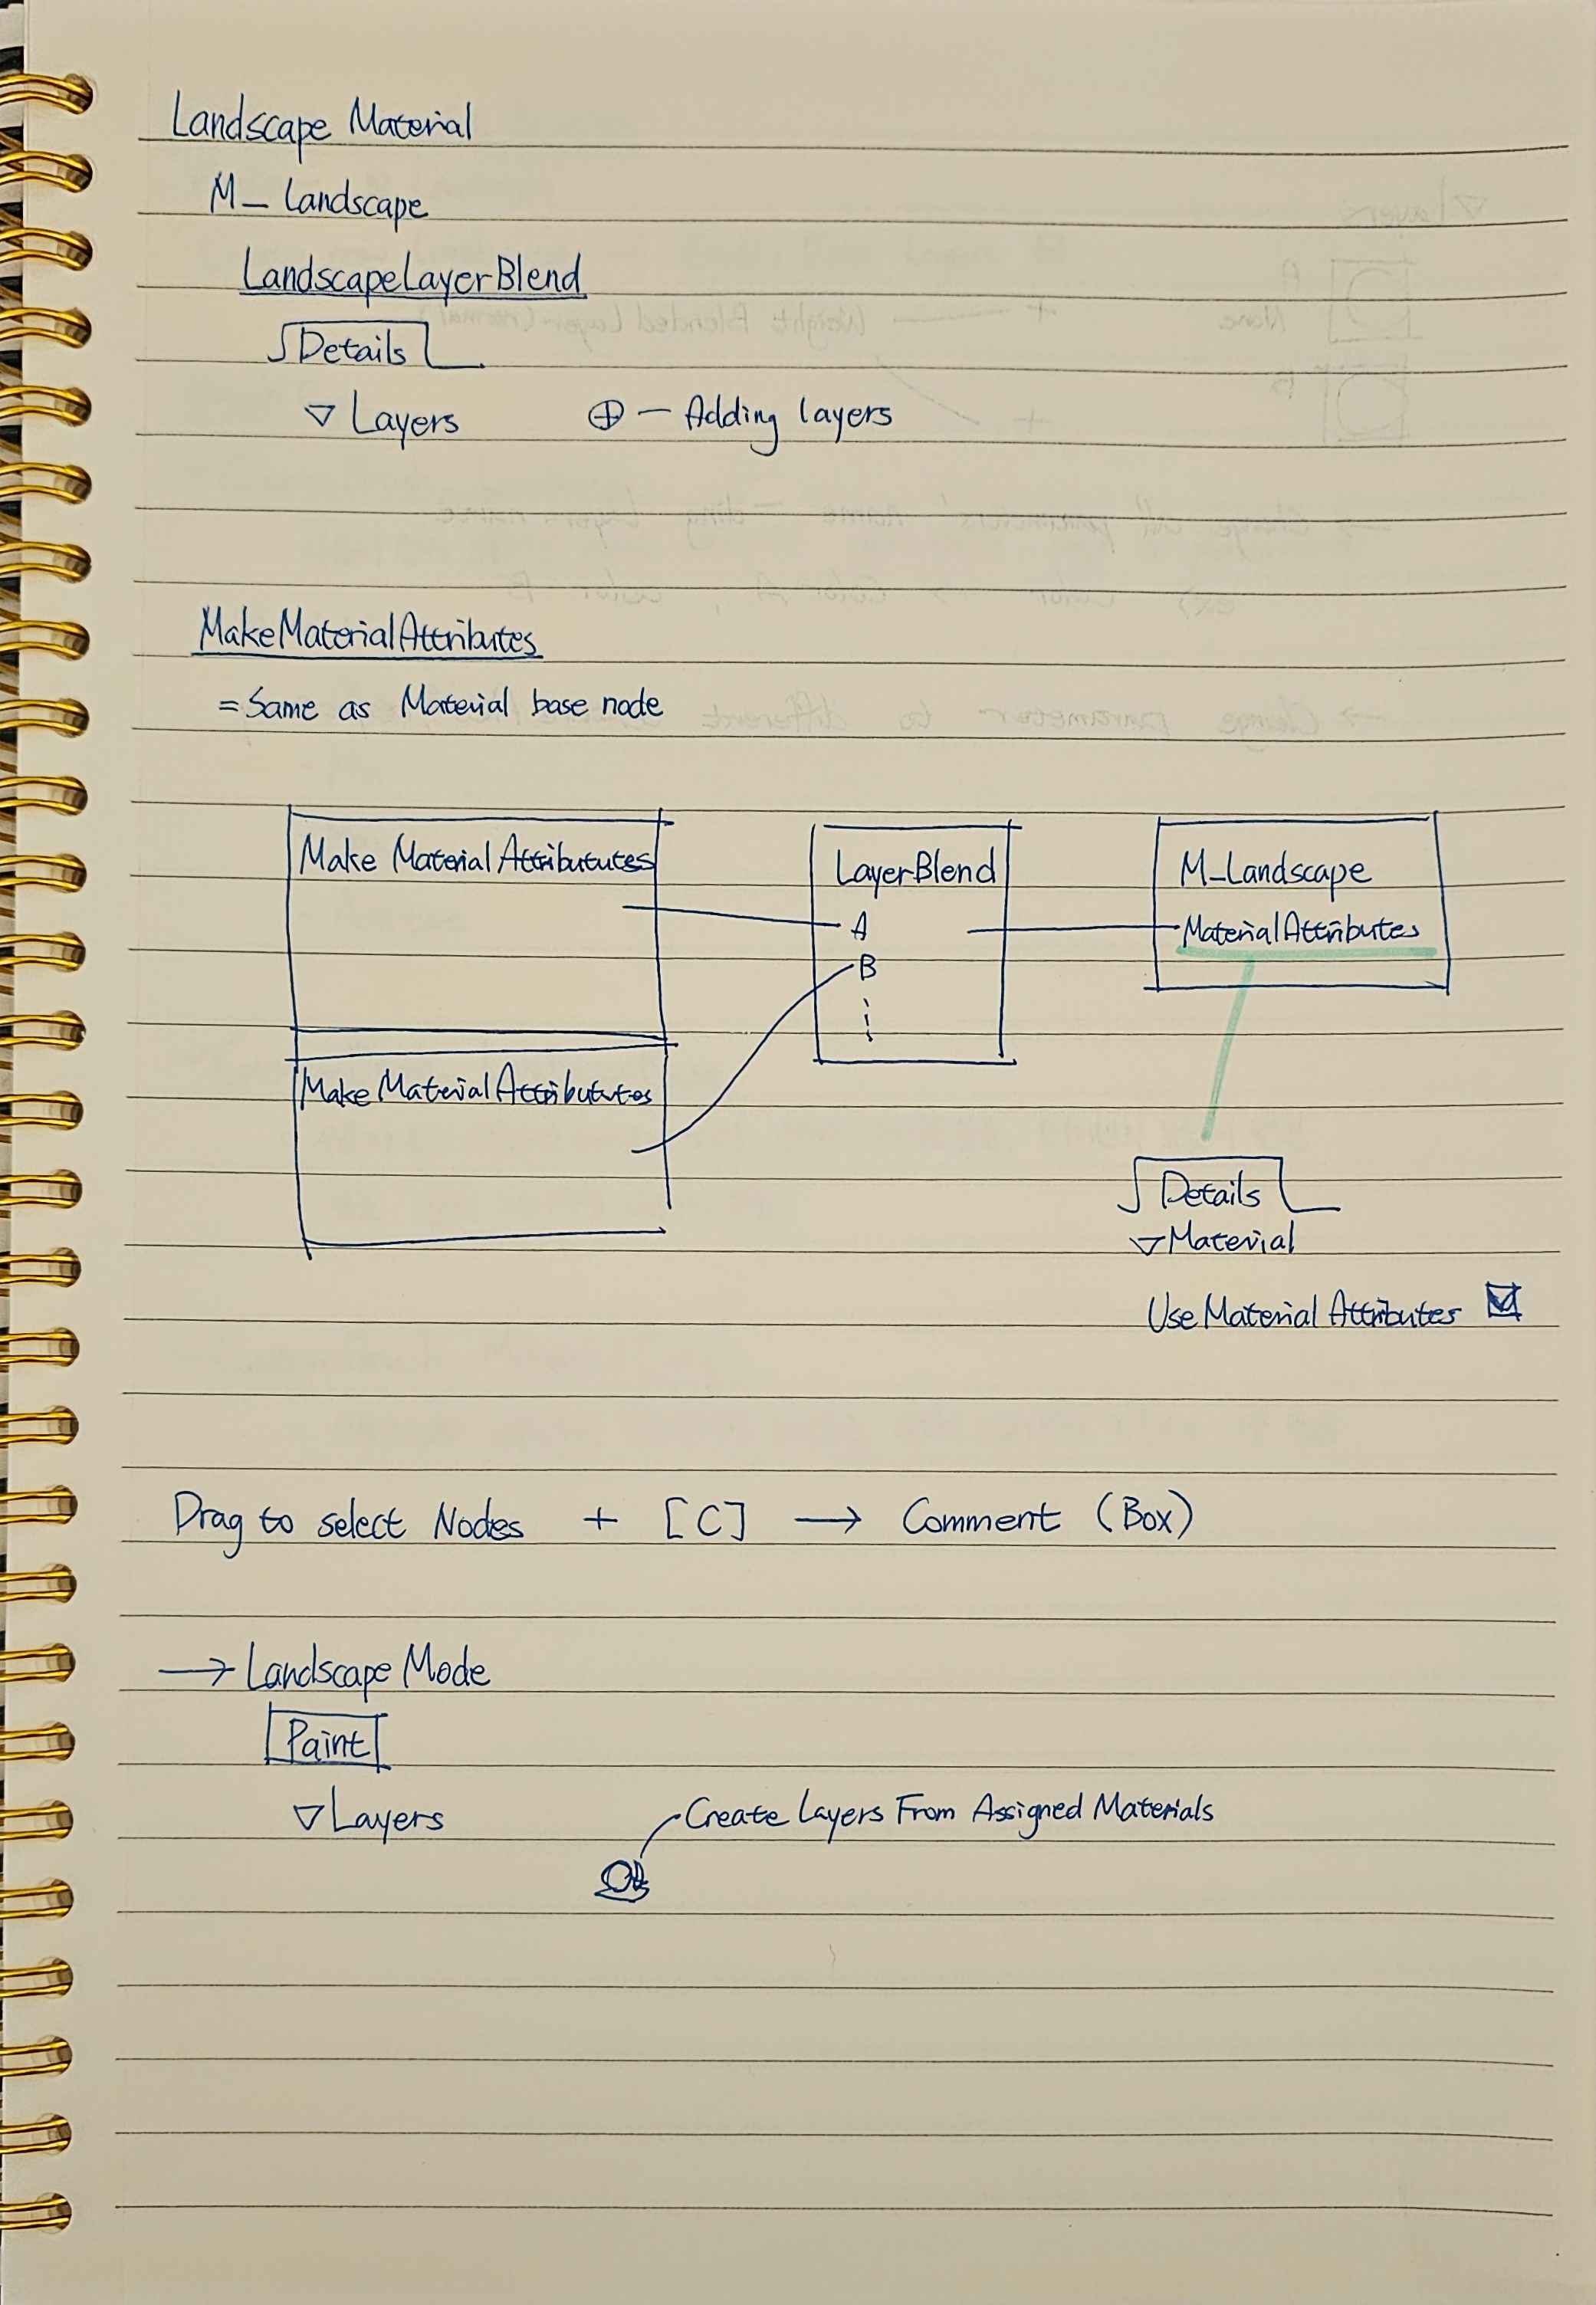 Landscape Material
M_ Landscape
LandscapeLayerBlend
Details
▽ Layers ⊕ — Adding layers
MakeMaterialAttributes
= Same as Material base node
Make Material Attribututes
LayerBlend
A
B
M_Landscape
MaterialAttributes
Make Material Attribututes
Details
▽ Material
Use Material Attributes ☑
Drag to select Nodes + [C] → Comment (Box)
→ Landscape Mode
Paint
▽ Layers
Create Layers From Assigned Materials